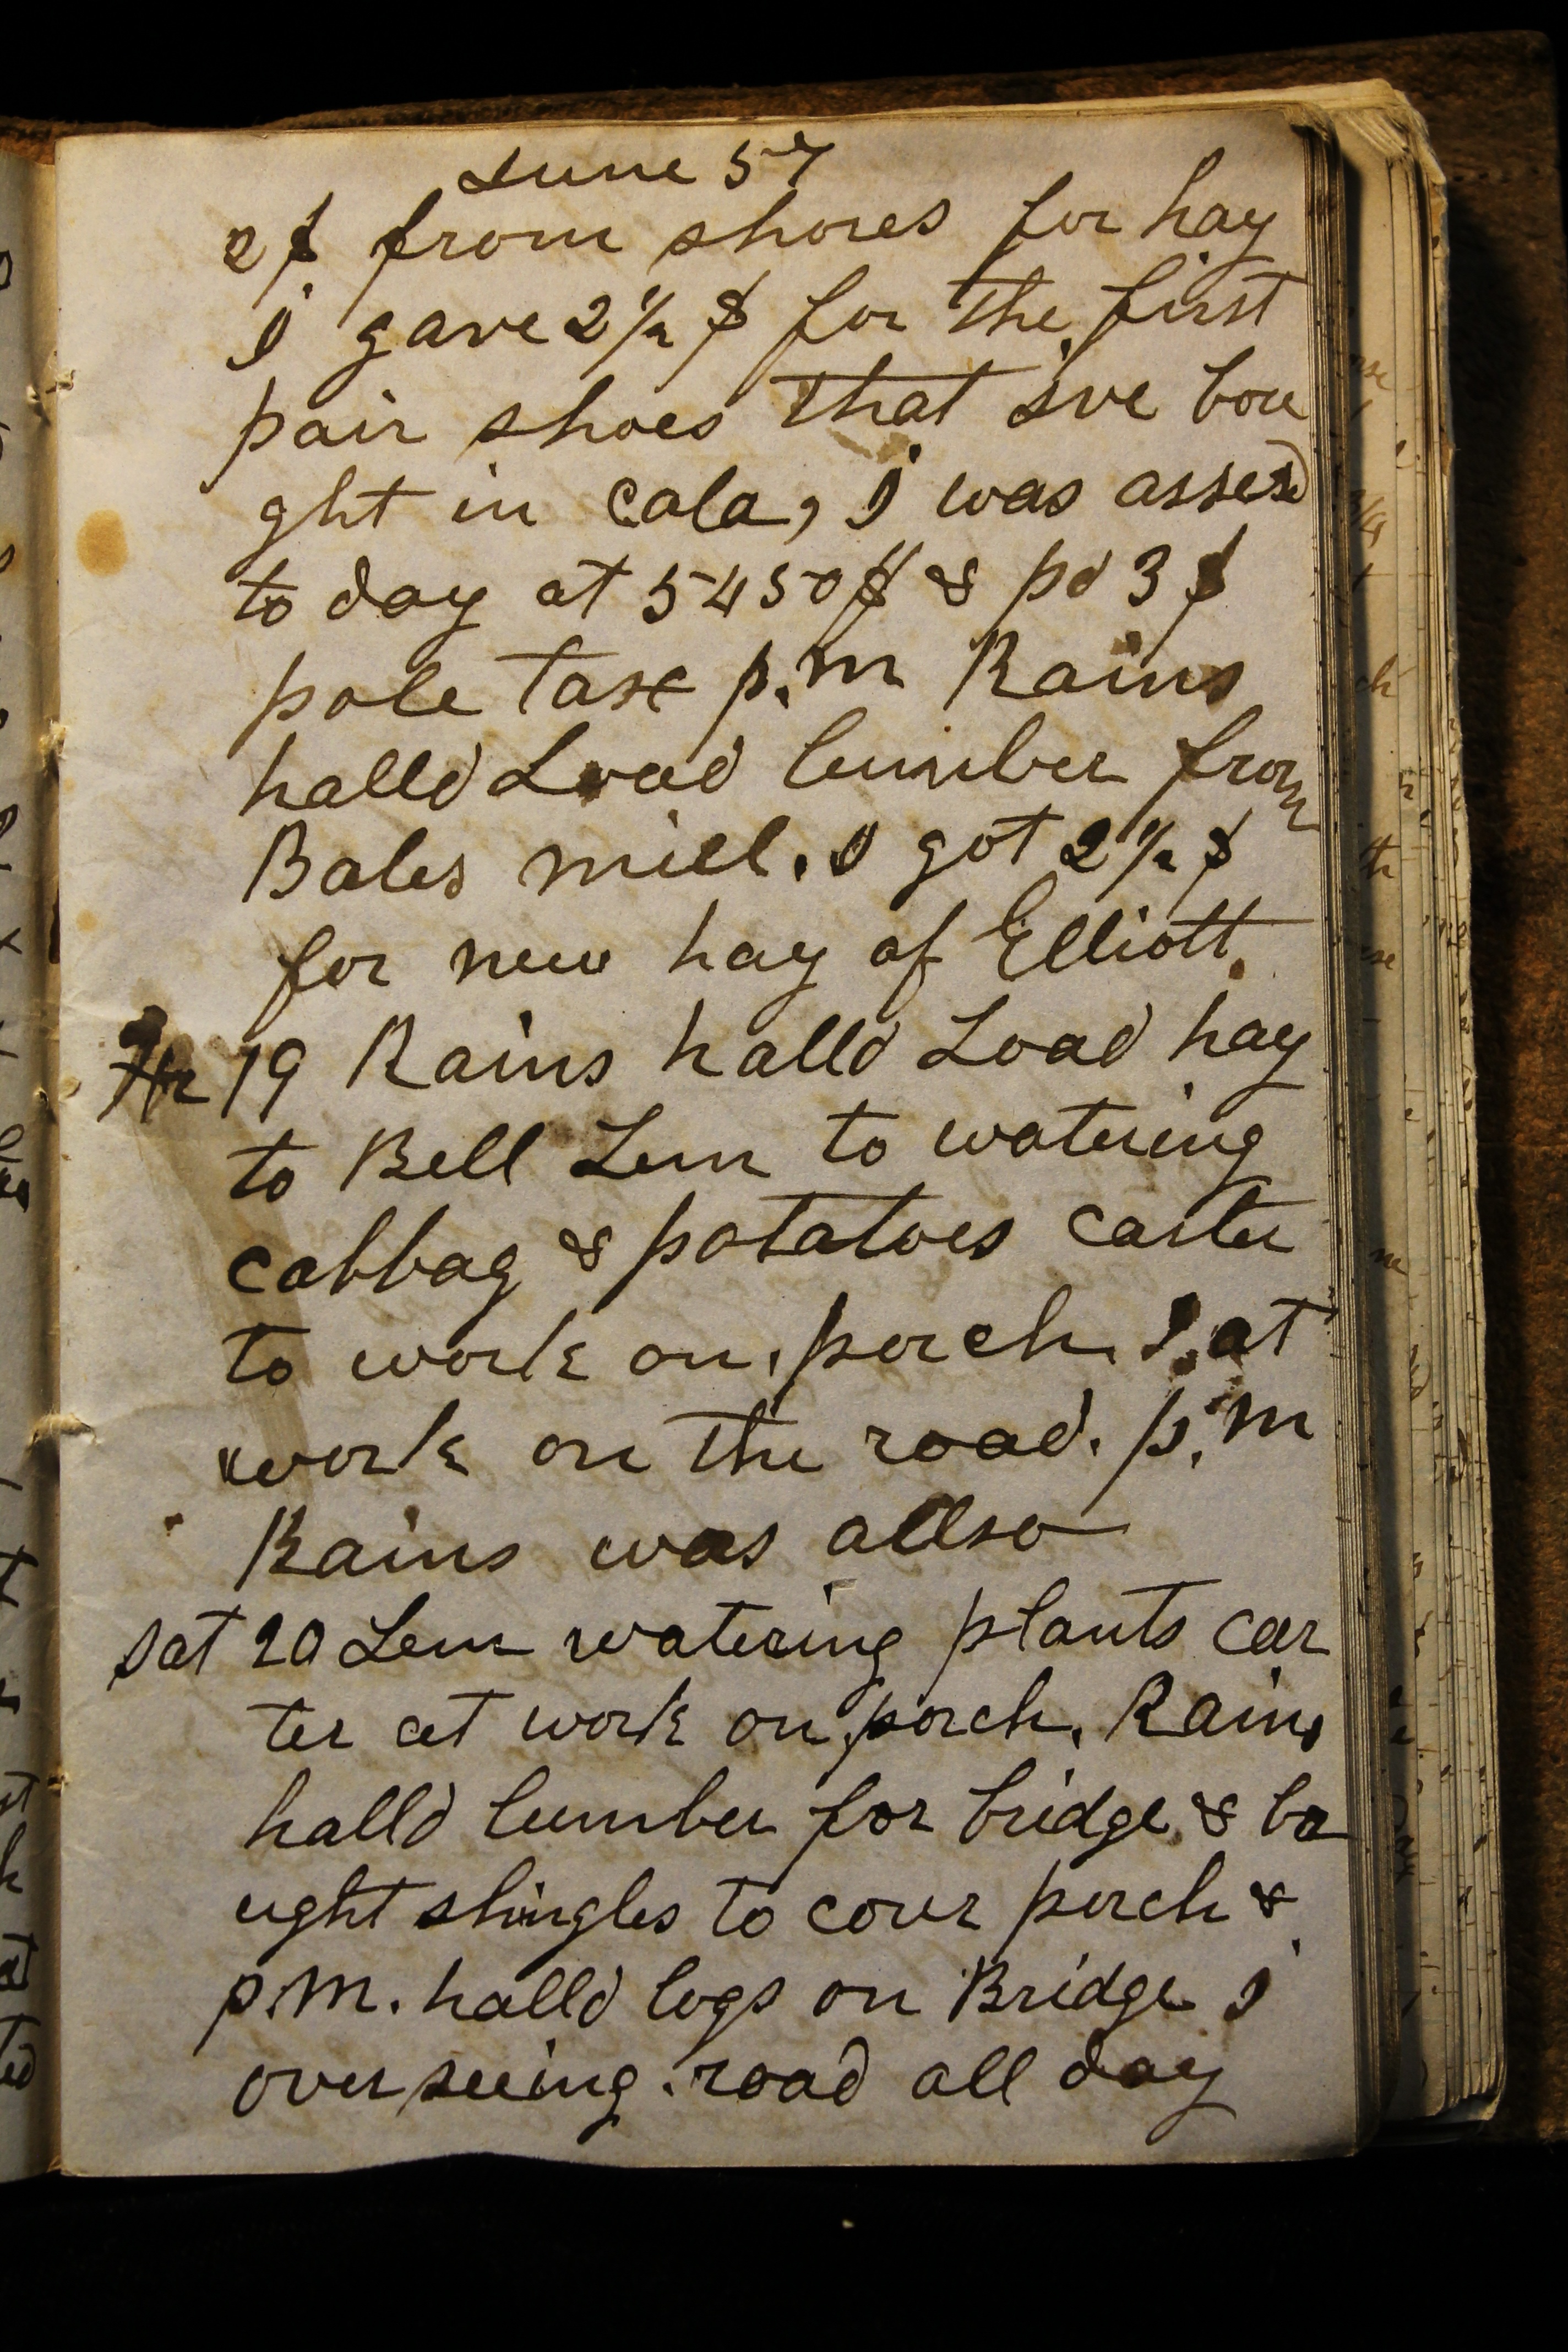 June 57
2$ from shores for hay
I gave 2½ $ for the first
pair shoes that ive bou
ght in cala, I was assesd
to day at 5450$ & pd 3 $
pole tax p.m Rains
halld Load lumber from
Bales mill. I got 2½ $
for new hay of Elliott.
Fr 19 Rains halld Load hay
to Bell Lem to watering
cabbag & potatoes carter
to work on porch. I at
work on the road. p.m
Rains was allso
Sat 20 Lem watering plants car
ter at work on porch. Rains
halld lumber for bridge & bo
ught shingles to cover porch &
p.m. halld logs on Bridge I
overseeing road all day